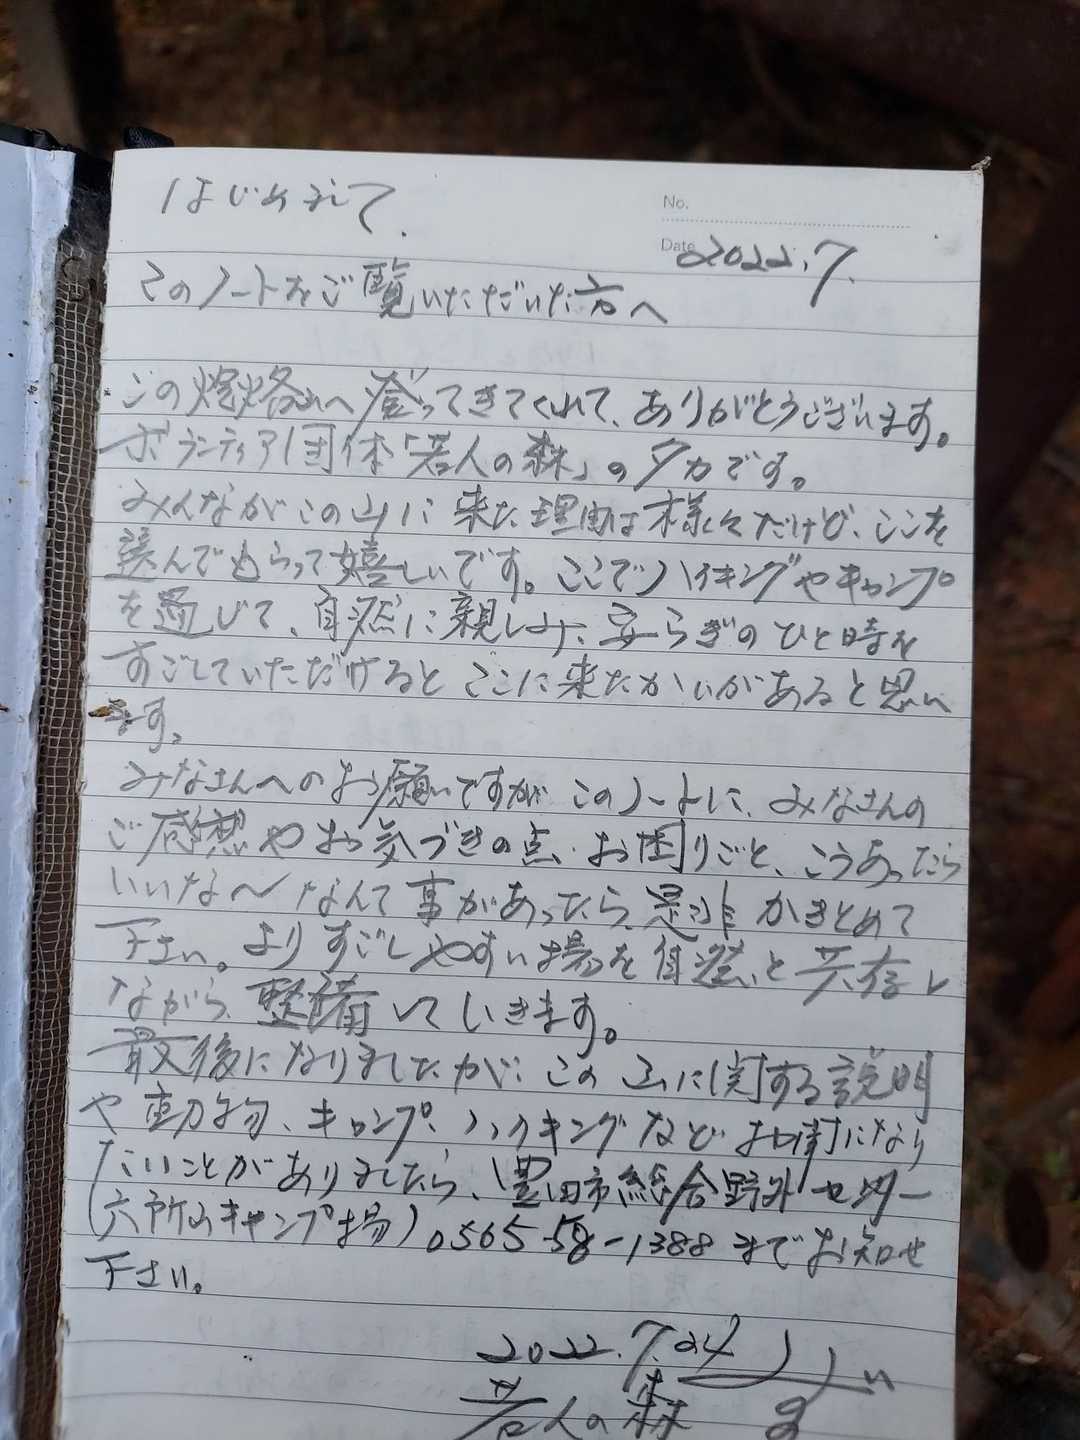 はじめまして、
No.
Date 2022.7.
このノートをご覧いただいた方へ
この焙烙山へ登ってきてくれて、ありがとうございます。
ボランティア団体「若人の森」のタカです。
みんながこの山に来た理由は様々だけど、ここを
選んでもらって嬉しいです。ここでハイキングやキャンプ
を通じて、自然に親しみ、安らぎのひと時を
すごしていただけるとここに来たかいがあると思い
ます。
みなさんへのお願いですが、このノートに、みなさんの
ご感想やお気づきの点、お困りごと、こうあったら
いいな〜なんて事があったら、是非かきとめて
下さい。よりすごしやすい場を自然と共存し
ながら、整備していきます。
最後になりましたが、この山に関する説明
や動物、キャンプ、ハイキングなどお聞になり
たいことがありましたら、豊田市総合野外センター
(六所山キャンプ場)0565-58-1388までお知せ
下さい。
2022.7.24
若人の森